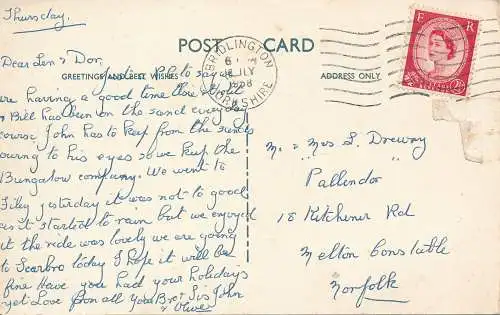 Thursday.
POST CARD
GREETINGS AND BEST WISHES
ADDRESS ONLY
BRIDLINGTON
JLY
YORKSHIRE
E R
POSTAGE
Dear Len & Dor,
Just a P.C. to say
are having a good time Elsie &
Bill has been on the sand everyday
course John has to keep from the sun
owing to his eyes so we keep the
Bungalow company. We went to
Filey yesterday it was not to good
as it started to rain but we enjoyed
it the ride was lovely we are going
to Scarbro today I hope it will be
fine Have you had your holidays
yet Love from all your Bro & Sis John
& Oliver
Mr & Mrs S. Drewery
" " "
Pallendor
18 Kitchener Rd
Melton Constable
Norfolk